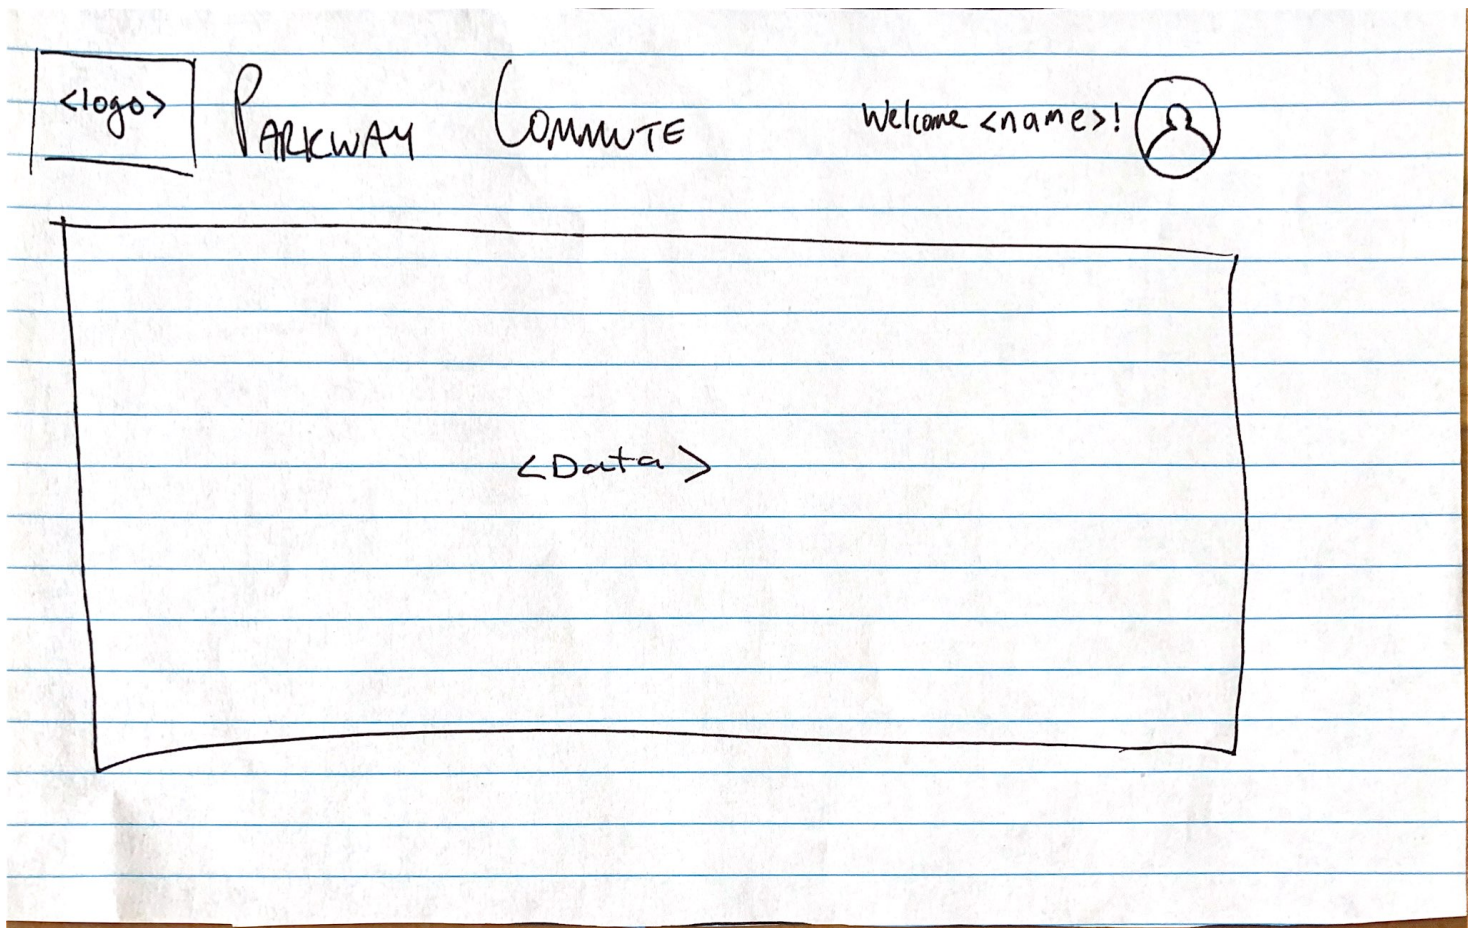 <logo>
PARKWAY COMMUTE
Welcome <name>!
<Data>